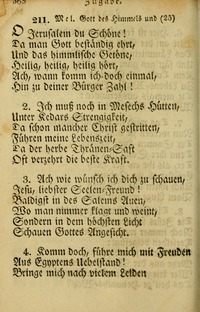 Zugabe.
211. Mel. Gott des Himmels und (25)
O Jerusalem du Schöne!
Da man Gott beständig ehrt,
Und das himmlische Getöne,
Heilig, heilig, heilig hört,
Ach, wann komm ich doch einmal,
Hin zu deiner Bürger Zahl!
2. Ich muß noch in Mesechs Hütten,
Unter Kedars Strengigkeit,
Da schon mancher Christ gestritten,
Führen meine Lebenszeit,
Da der herbe Thränen-Saft
Oft verzehrt die beste Kraft.
3. Ach wie wünsch ich dich zu schauen,
Jesu, liebster Seelen-Freund!
Baldigst in des Salems Auen,
Wo man nimmer klagt und weint,
Sondern in dem höchsten Licht
Schauen Gottes Angesicht.
4. Komm doch, führe mich mit Freuden
Aus Egyptens Uebelstand!
Bringe mich nach vielem Leiden